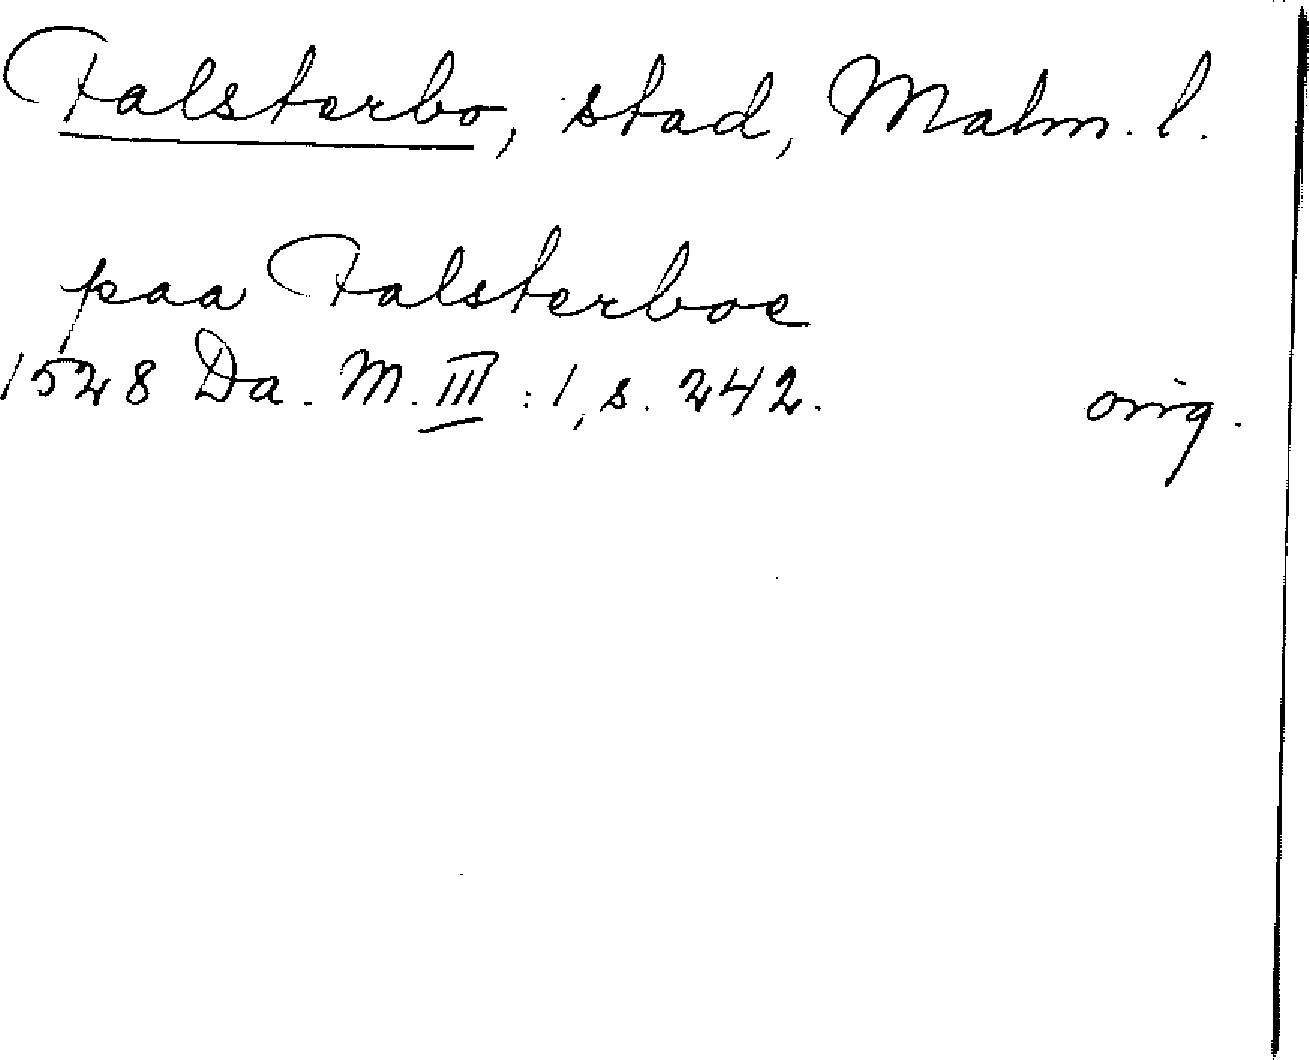 Falsterbo, stad, Malm. l.
paa Falsterboe
1528 Da. M. III : 1, s. 242. orig.